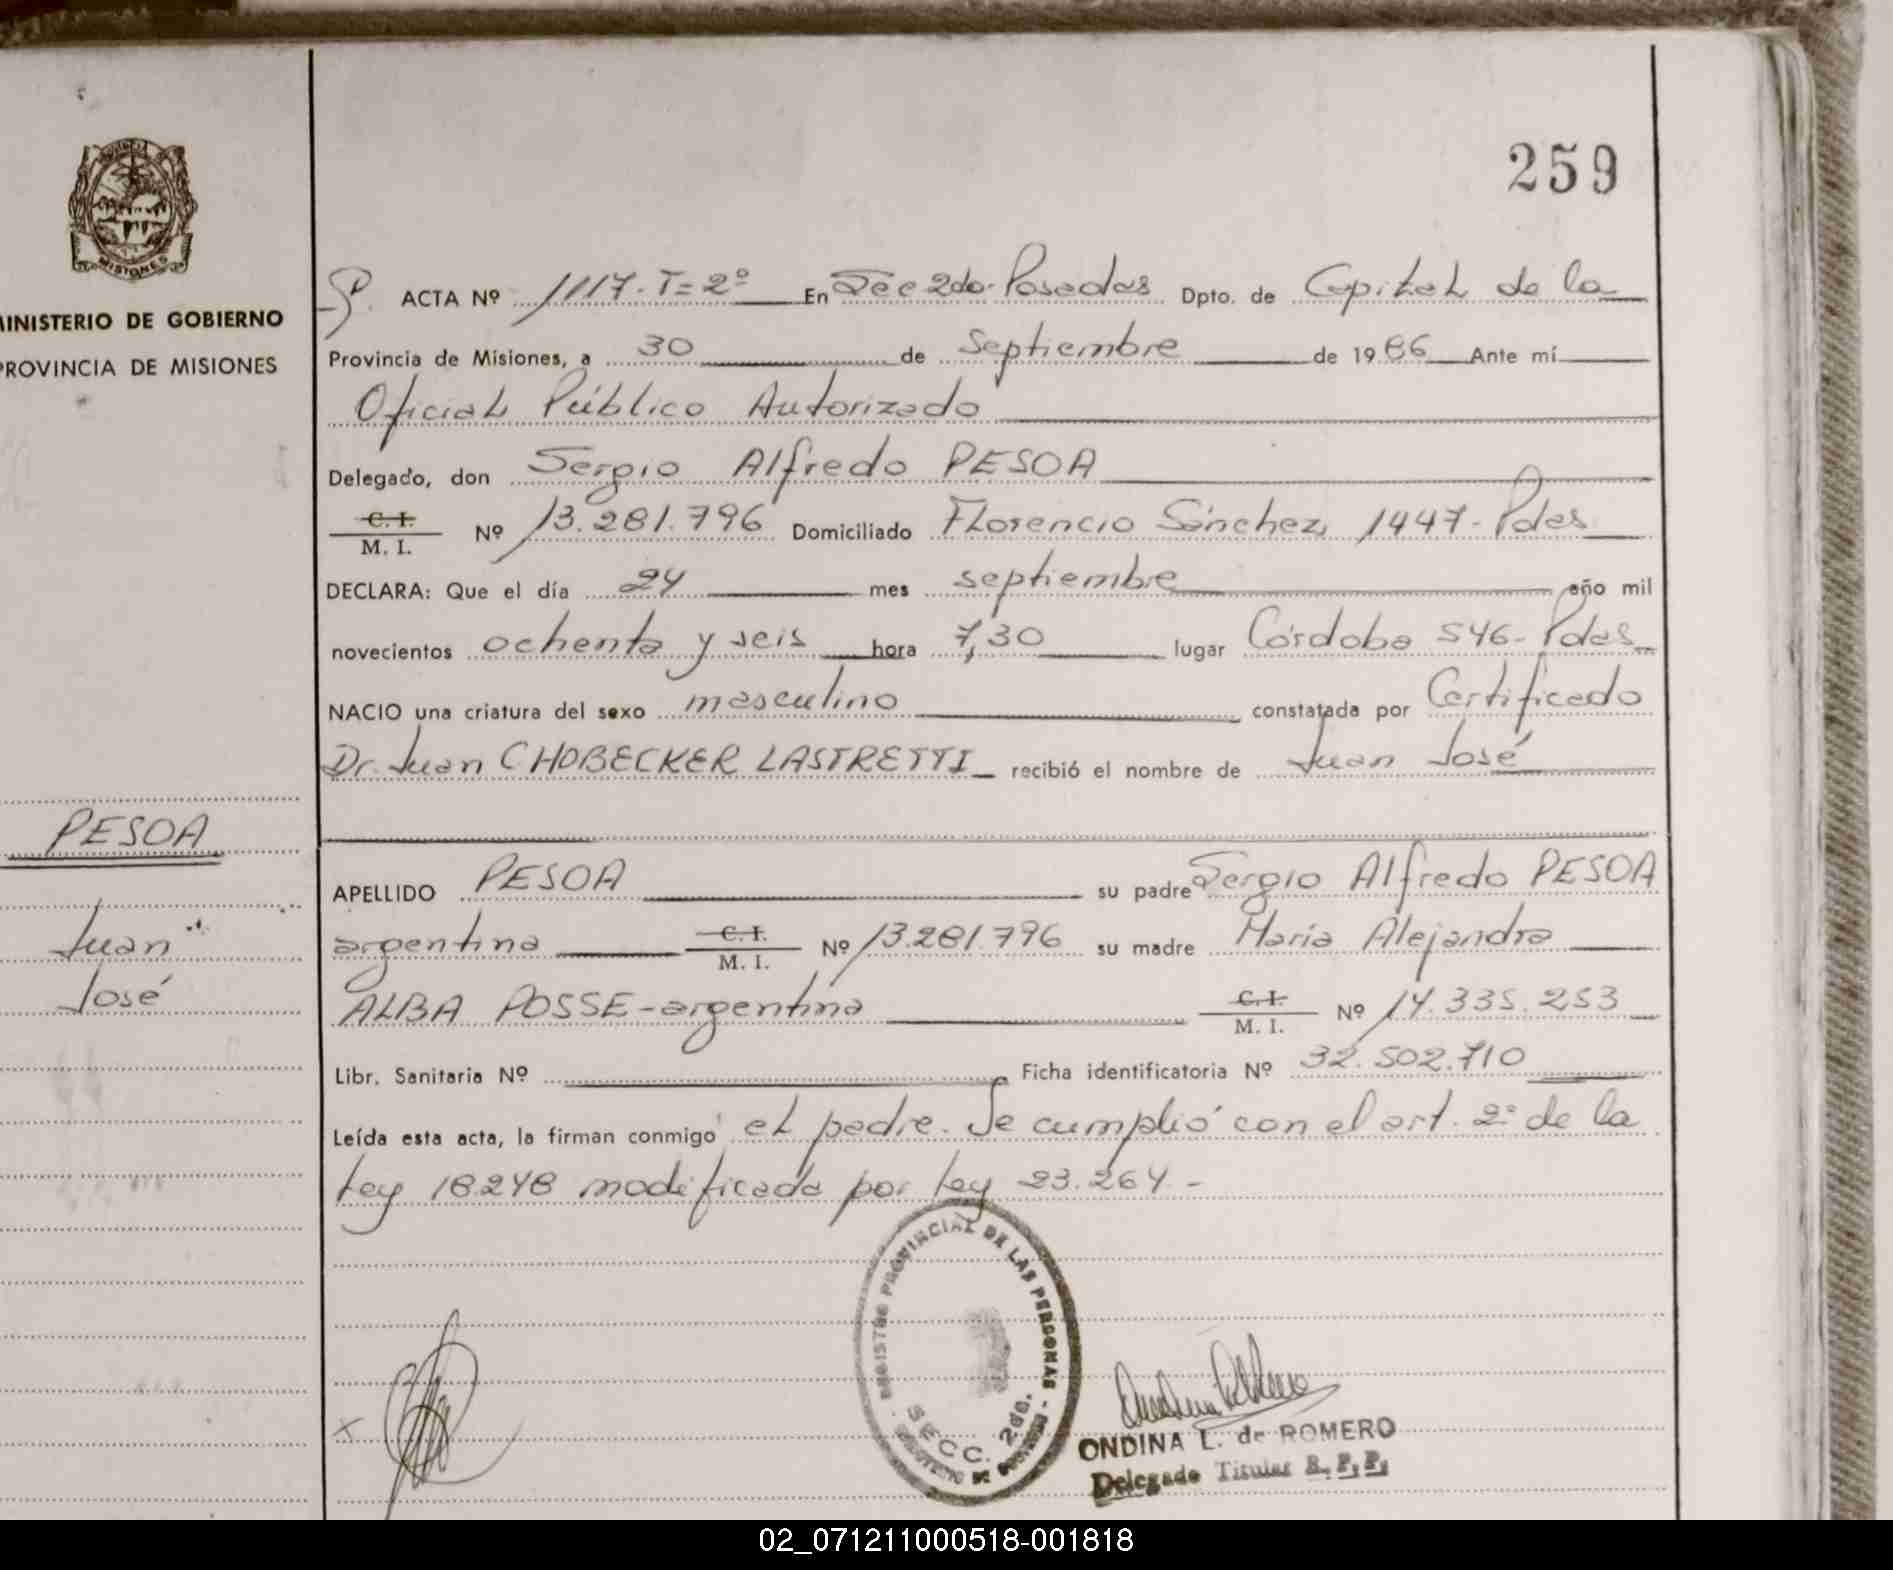 259
MISIONES
MINISTERIO DE GOBIERNO
PROVINCIA DE MISIONES
ACTA Nº 1117. T= 2º En Sec 2da. Posadas Dpto. de Capital de la
Provincia de Misiones, a 30 de septiembre de 1986 Ante mí
Oficial Público Autorizado
Delegado, don Sergio Alfredo PESOA
C. I.
M. I. Nº 13.281.796 Domiciliado Florencio Sánchez 1447- Pdas
DECLARA: Que el día 24 mes septiembre año mil
novecientos ochenta y seis hora 7,30 lugar Córdoba 546- Pdas
NACIO una criatura del sexo masculino constatada por Certificado
Dr. Juan CHOBECKER LASTRETTI recibió el nombre de Juan José
PESOA
Juan
José
APELLIDO PESOA su padre Sergio Alfredo PESOA
argentina C. I. Nº 13.281.796 su madre María Alejandra
M. I.
ALBA POSSE-argentina C. I. Nº 14.335.253
M. I.
Libr. Sanitaria Nº Ficha identificatoria Nº 32.502.710
Leída esta acta, la firman conmigo el padre. Se cumplió con el art. 2º de la
ley 18248 modificada por ley 23.264.-
REGISTRO PROVINCIAL DE LAS PERSONAS
SECC. 2da.
ONDINA L. de ROMERO
Delegado Titular R. P. P.
02_071211000518-001818